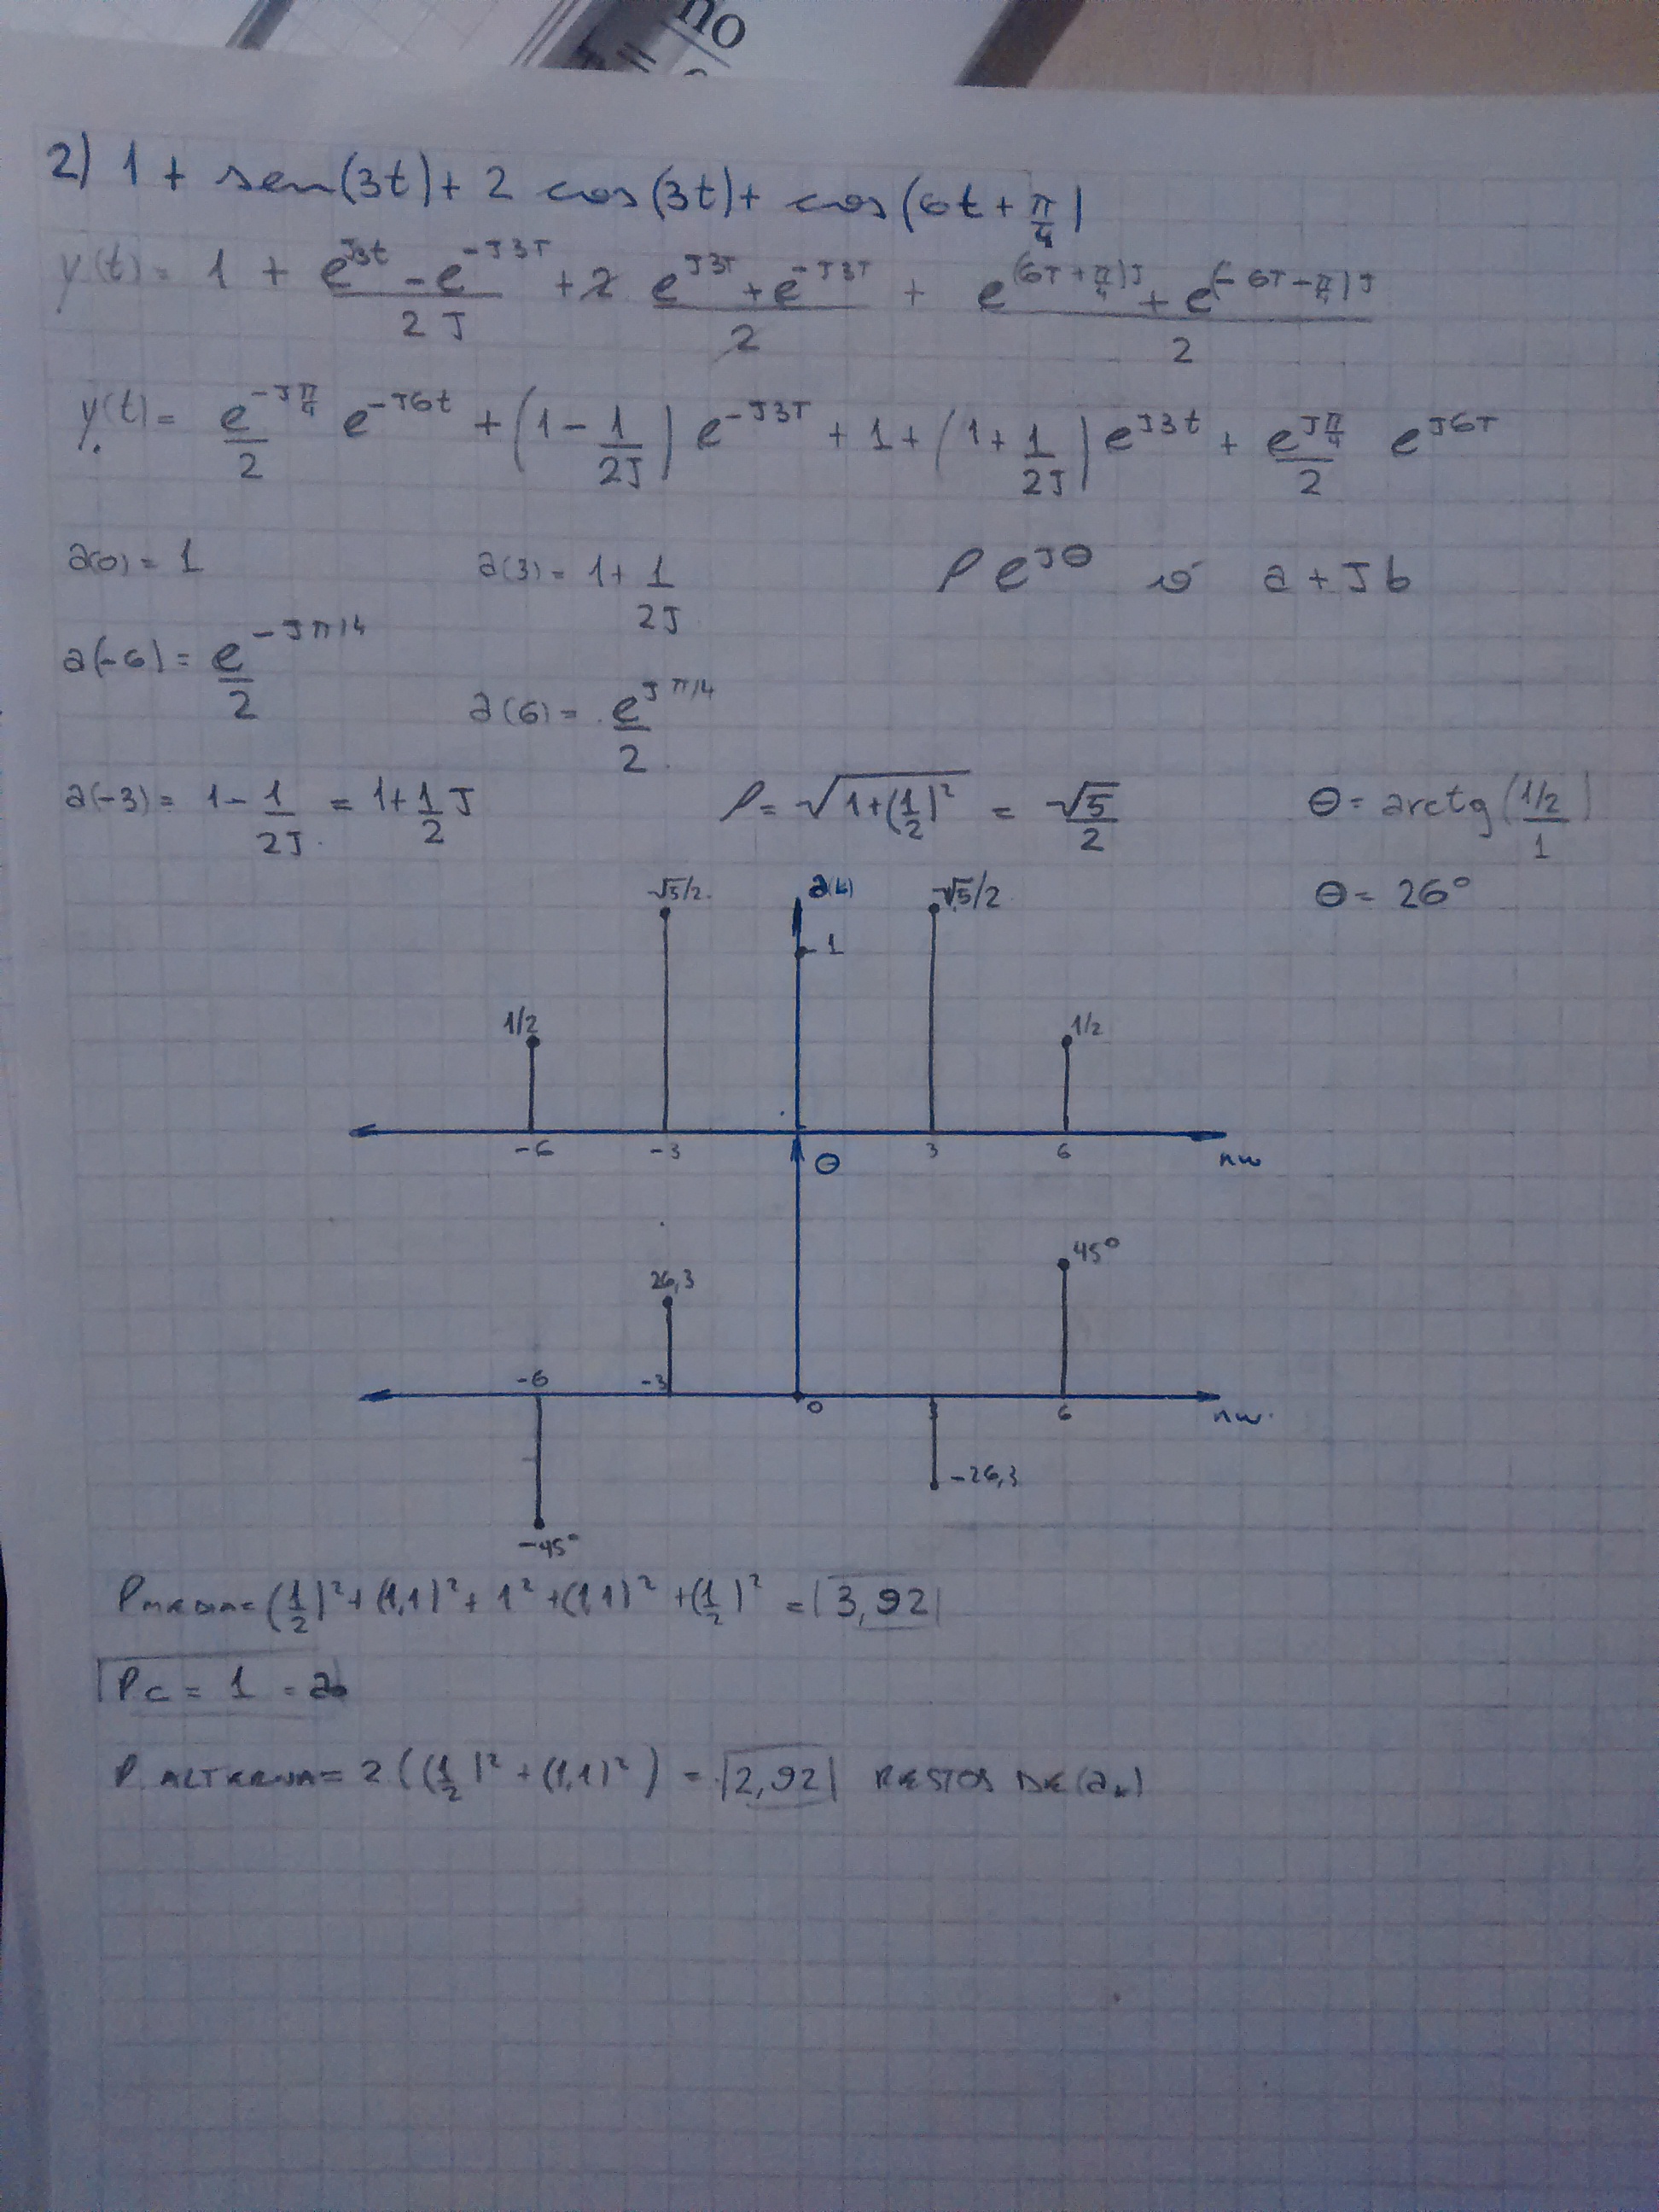 no
=
2) 1 + sen(3t) + 2 cos(3t) + cos(6t + π/4)
y(t) = 1 + (e^J3t - e^-J3T)/2J + 2 (e^J3T + e^-J3T)/2 + (e^(6T + π/4)J + e^(-6T - π/4)J)/2
y(t) = e^-Jπ/4/2 e^-J6t + (1 - 1/2J) e^-J3T + 1 + (1 + 1/2J) e^J3t + e^Jπ/4/2 e^J6T
a(0) = 1 a(3) = 1 + 1/2J ρ e^Jθ ó a + Jb
a(-6) = e^-Jπ/4/2
a(6) = e^Jπ/4/2
a(-3) = 1 - 1/2J = 1 + 1/2 J ρ = √(1 + (1/2)²) = √5/2 θ = arctg((1/2)/1)
√5/2 a(k) √5/2 θ = 26°
1
1/2 1/2
-6 -3 3 6 nw
θ
45°
26,3
-6 -3 0 3 6 nw
-26,3
-45°
PMEDIA = (1/2)² + (1,1)² + 1² + (1,1)² + (1/2)² = 3,92
Pc = 1 = a0
P ALTERNA = 2((1/2)² + (1,1)²) = 2,92 RESTOS DE (ak)